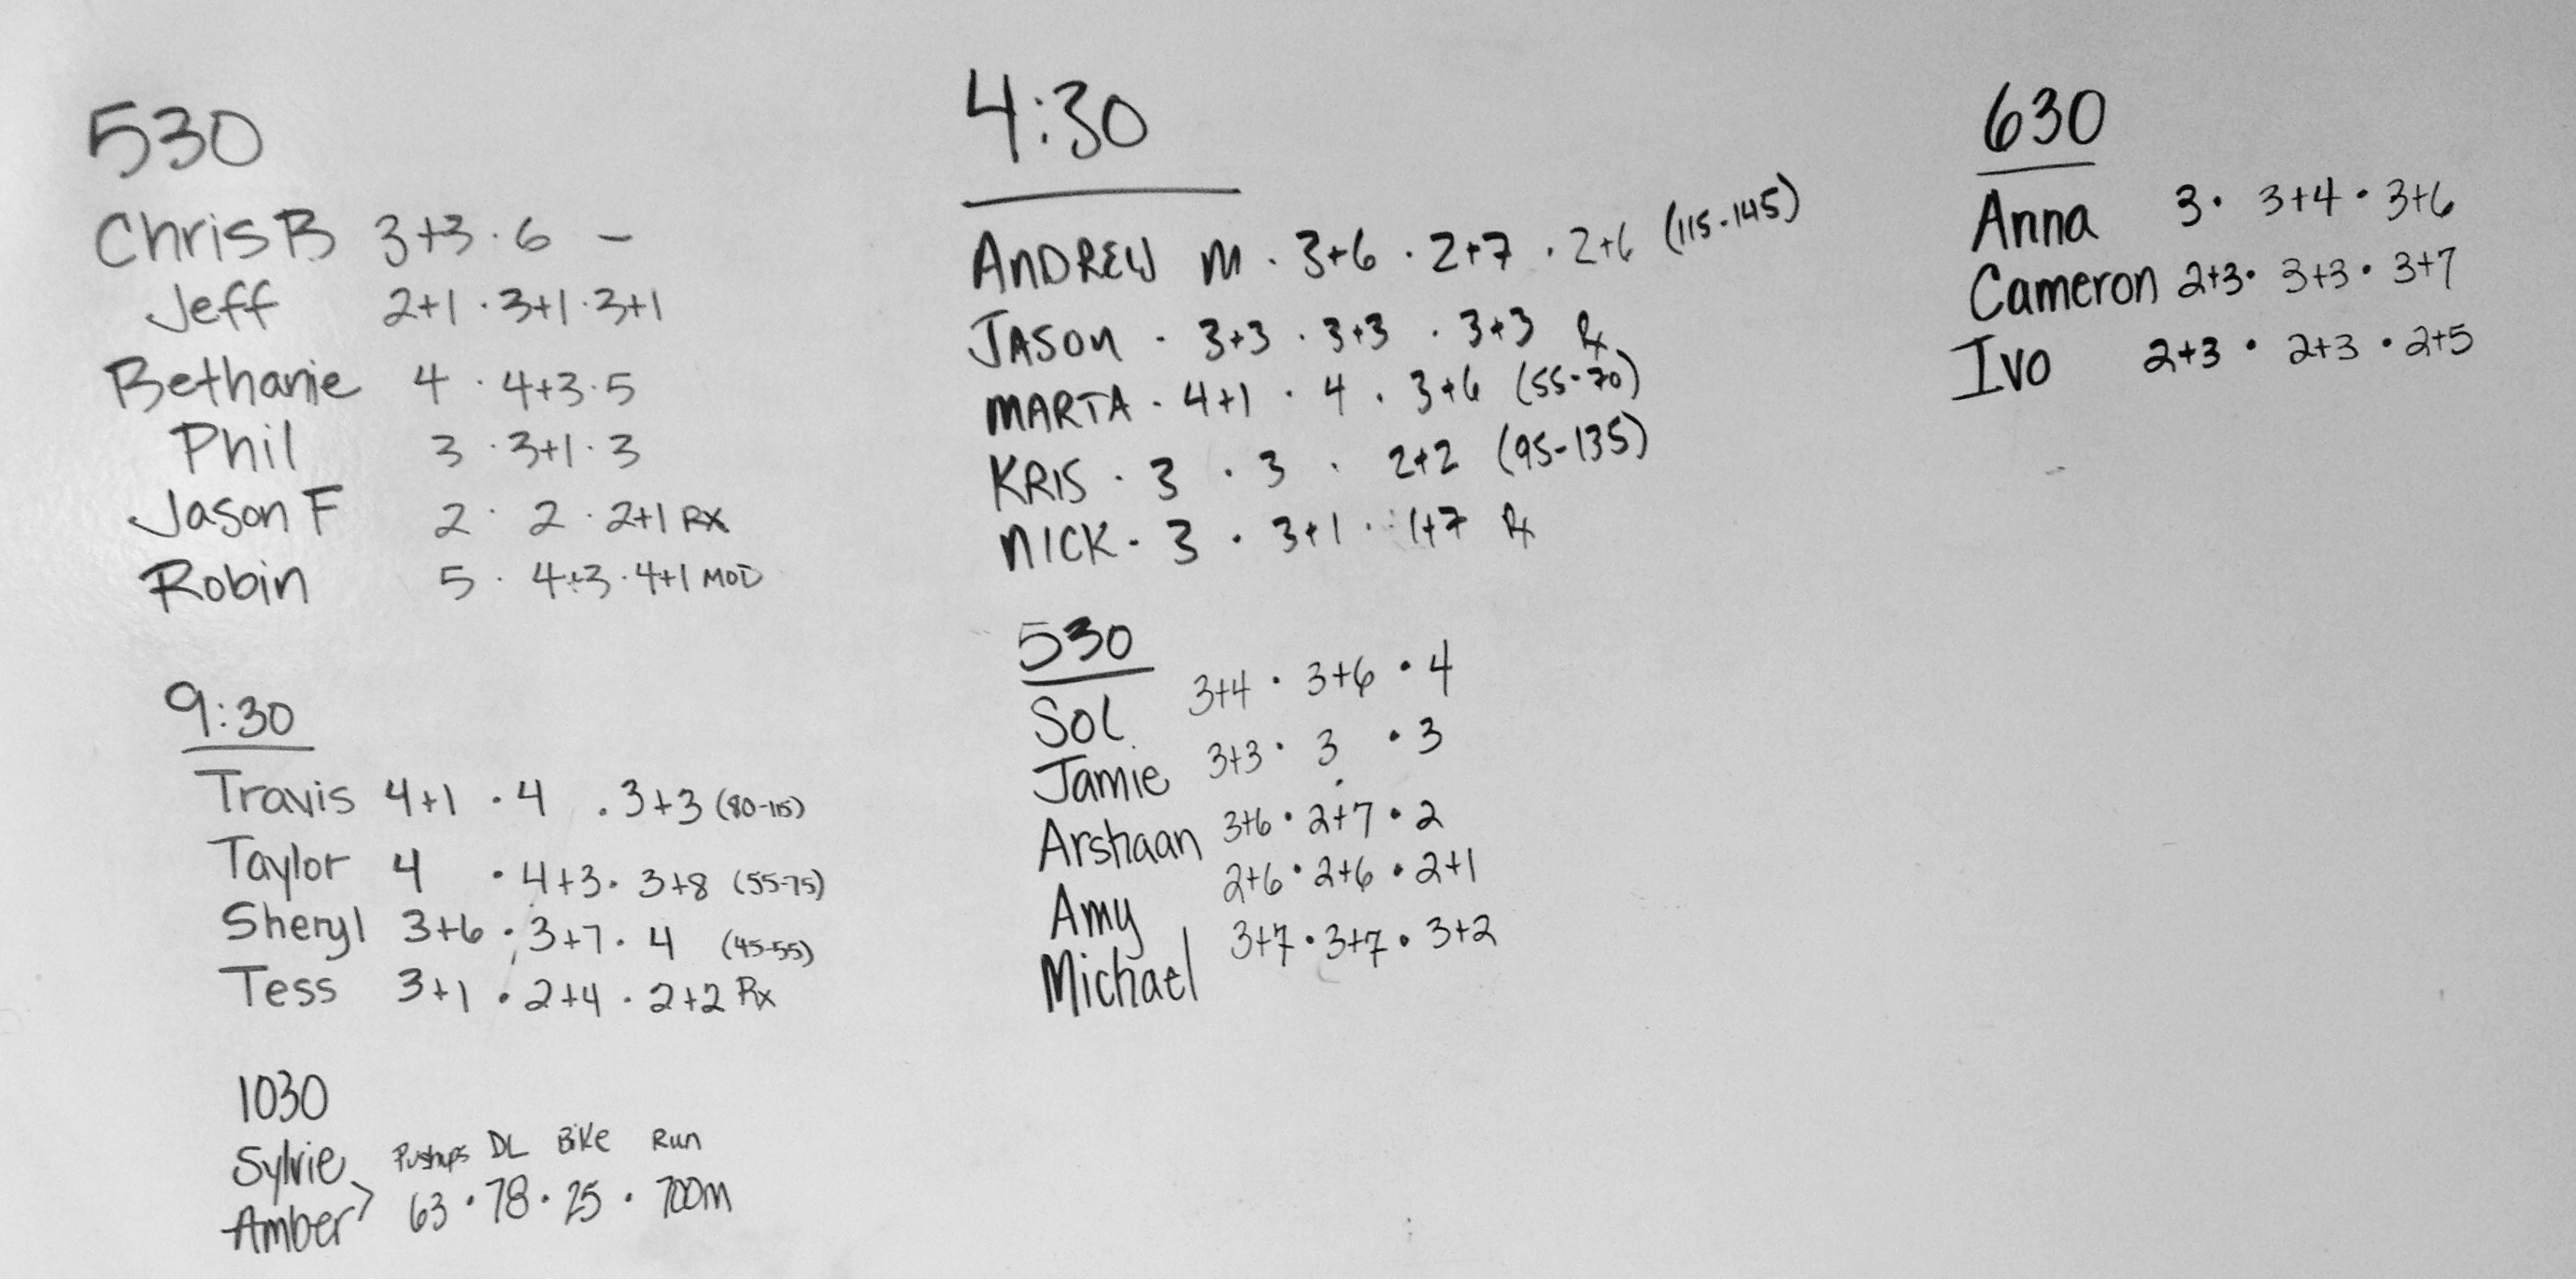 530
Chris B 3+3 · 6 –
Jeff 2+1 · 3+1 · 3+1
Bethanie 4 · 4+3 · 5
Phil 3 · 3+1 · 3
Jason F 2 · 2 · 2+1 RX
Robin 5 · 4+3 · 4+1 MOD
9:30
Travis 4+1 · 4 · 3+3 (80-115)
Taylor 4 · 4+3 · 3+8 (55-75)
Sheryl 3+6 · 3+7 · 4 (45-55)
Tess 3+1 · 2+4 · 2+2 Rx
1030
Pushups DL Bike Run
Sylvie
Amber > 63 · 78 · 25 · 700m
4:30
ANDREW M · 3+6 · 2+7 · 2+6 (115-145)
JASON · 3+3 · 3+3 · 3+3 Rx
MARTA · 4+1 · 4 · 3+6 (55-70)
KRIS · 3 · 3 · 2+2 (95-135)
NICK · 3 · 3+1 · 1+7 Rx
530
Sol 3+4 · 3+6 · 4
Jamie 3+3 · 3 · 3
Arshaan 3+6 · 2+7 · 2
Amy 2+6 · 2+6 · 2+1
Michael 3+7 · 3+7 · 3+2
630
Anna 3 · 3+4 · 3+6
Cameron 2+3 · 3+3 · 3+7
Ivo 2+3 · 2+3 · 2+5